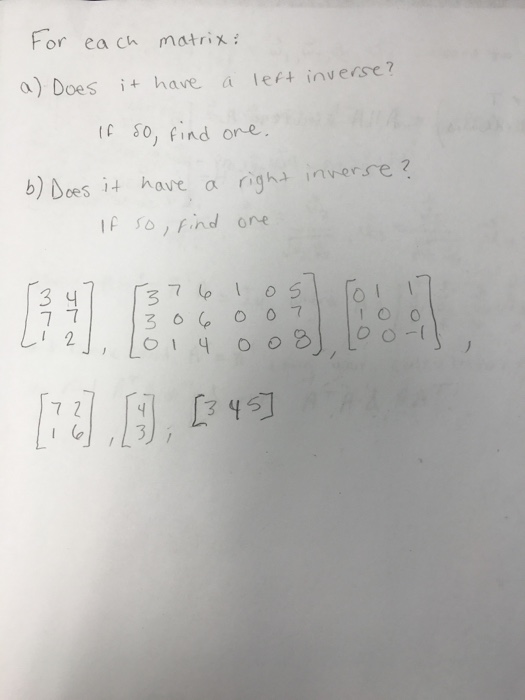 For each matrix:
a) Does it have a left inverse?
If so, find one.
b) Does it have a right inverse?
If so, find one
[3 4
7 7
1 2], [3 7 6 1 0 5
3 0 6 0 0 7
0 1 4 0 0 8], [0 1 1
1 0 0
0 0 -1],
[7 2
1 6], [4
3], [3 4 5]